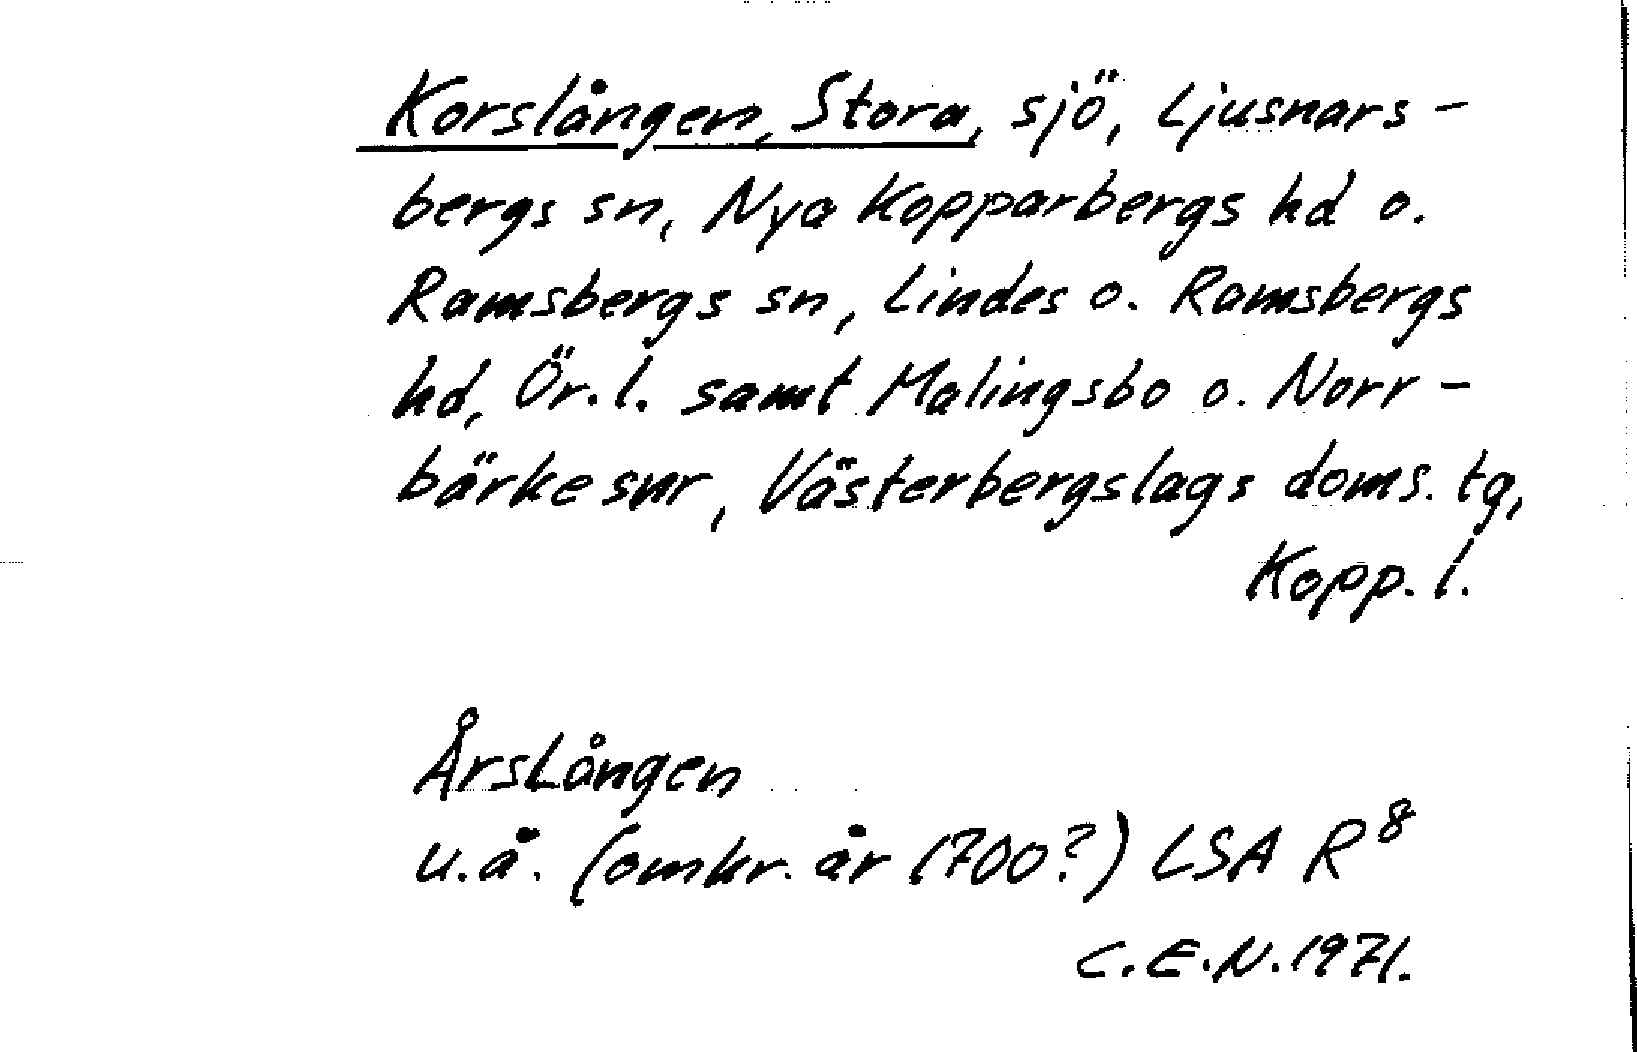 Korslången, Stora, sjö, Ljusnars-
bergs sn, Nya Kopparbergs hd o.
Ramsbergs sn, Lindes o. Ramsbergs
hd, Ör. l. samt Malingsbo o. Norr-
bärke snr, Västerbergslags doms. tg,
Kopp. l.
ÅrsLången
u.å. (omkr. år 1700?) LSA R⁸
C.E.N. 1971.